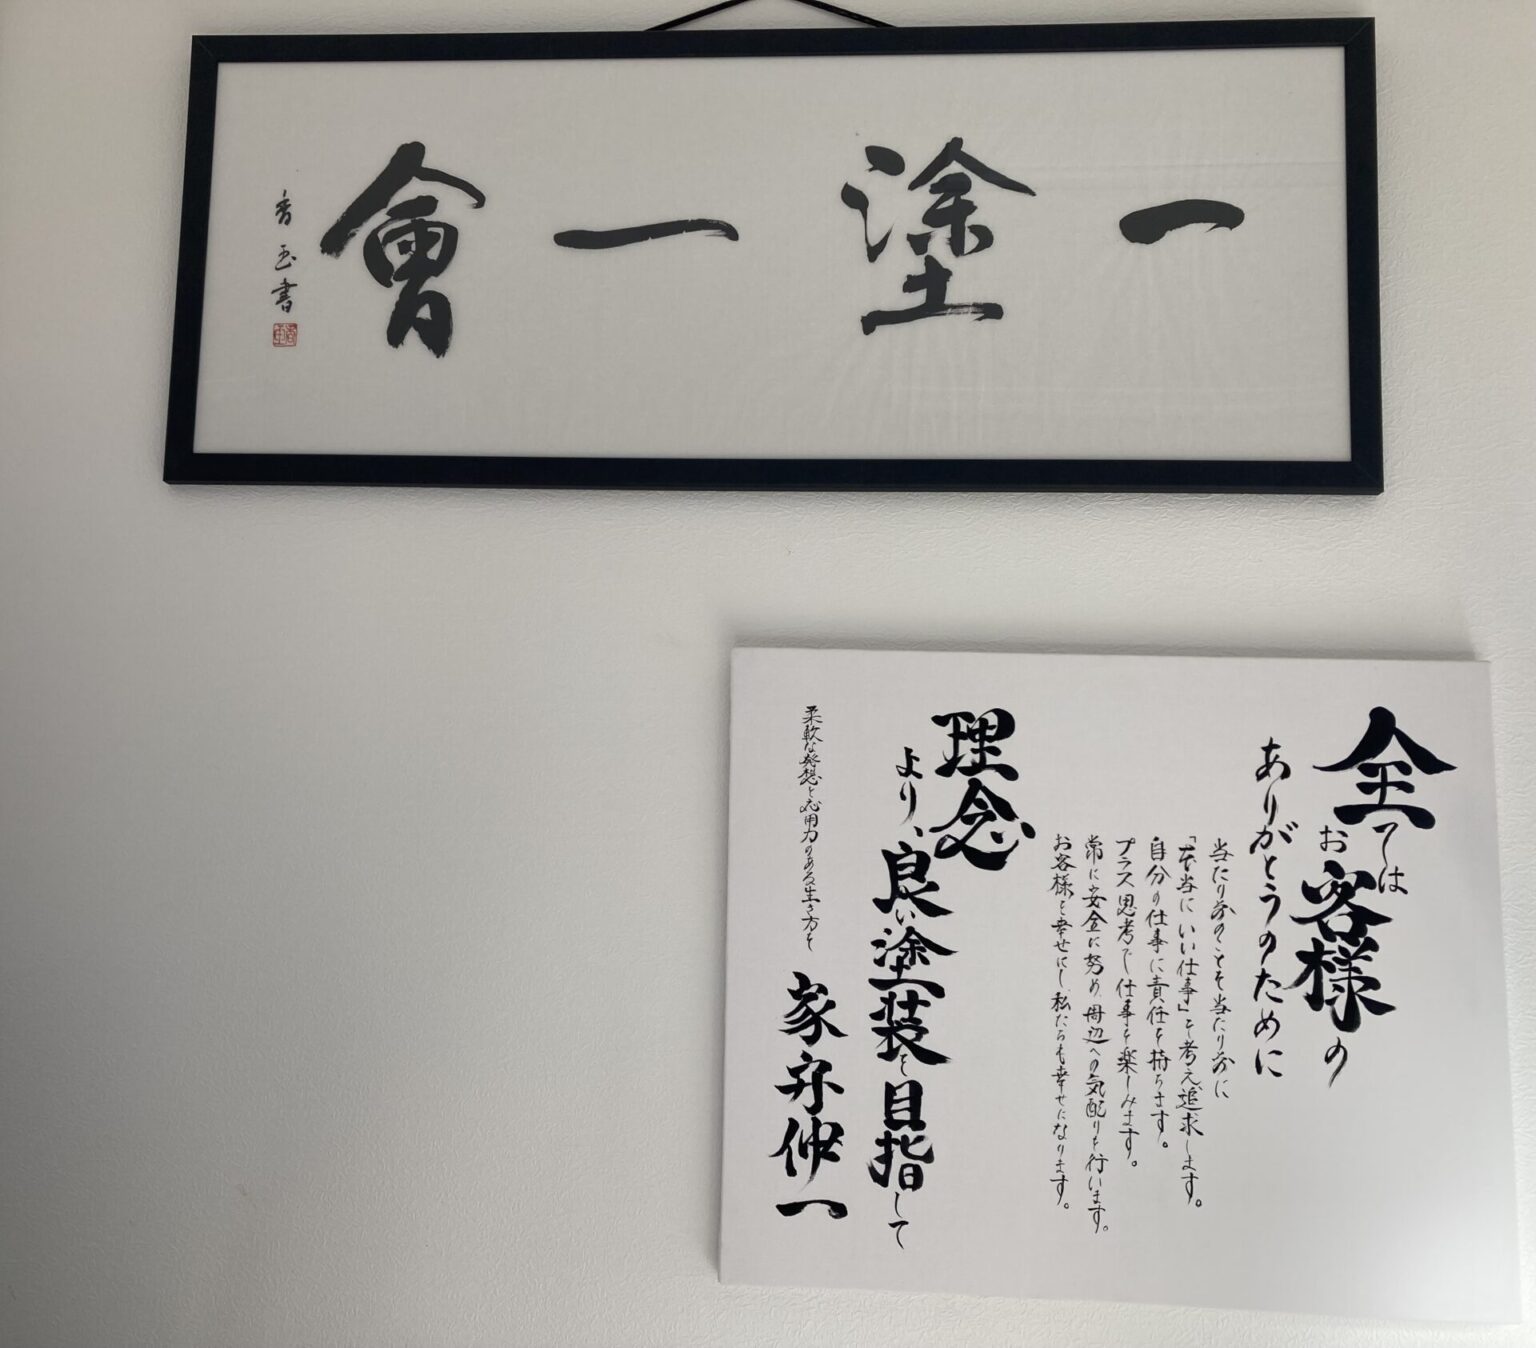 一塗一會
香玉書
全ては
お客様の
ありがとうのために
当たり前のことを当たり前に
「本当にいい仕事」を考え追求します。
自分の仕事に責任を持ちます。
プラス思考で仕事を楽しみます。
常に安全に努め、周辺への気配りを行います。
お客様を幸せにし、私たちも幸せになります。
理念
より、良い塗装を目指して
柔軟な発想と応用力のある生き方を
家守伸一